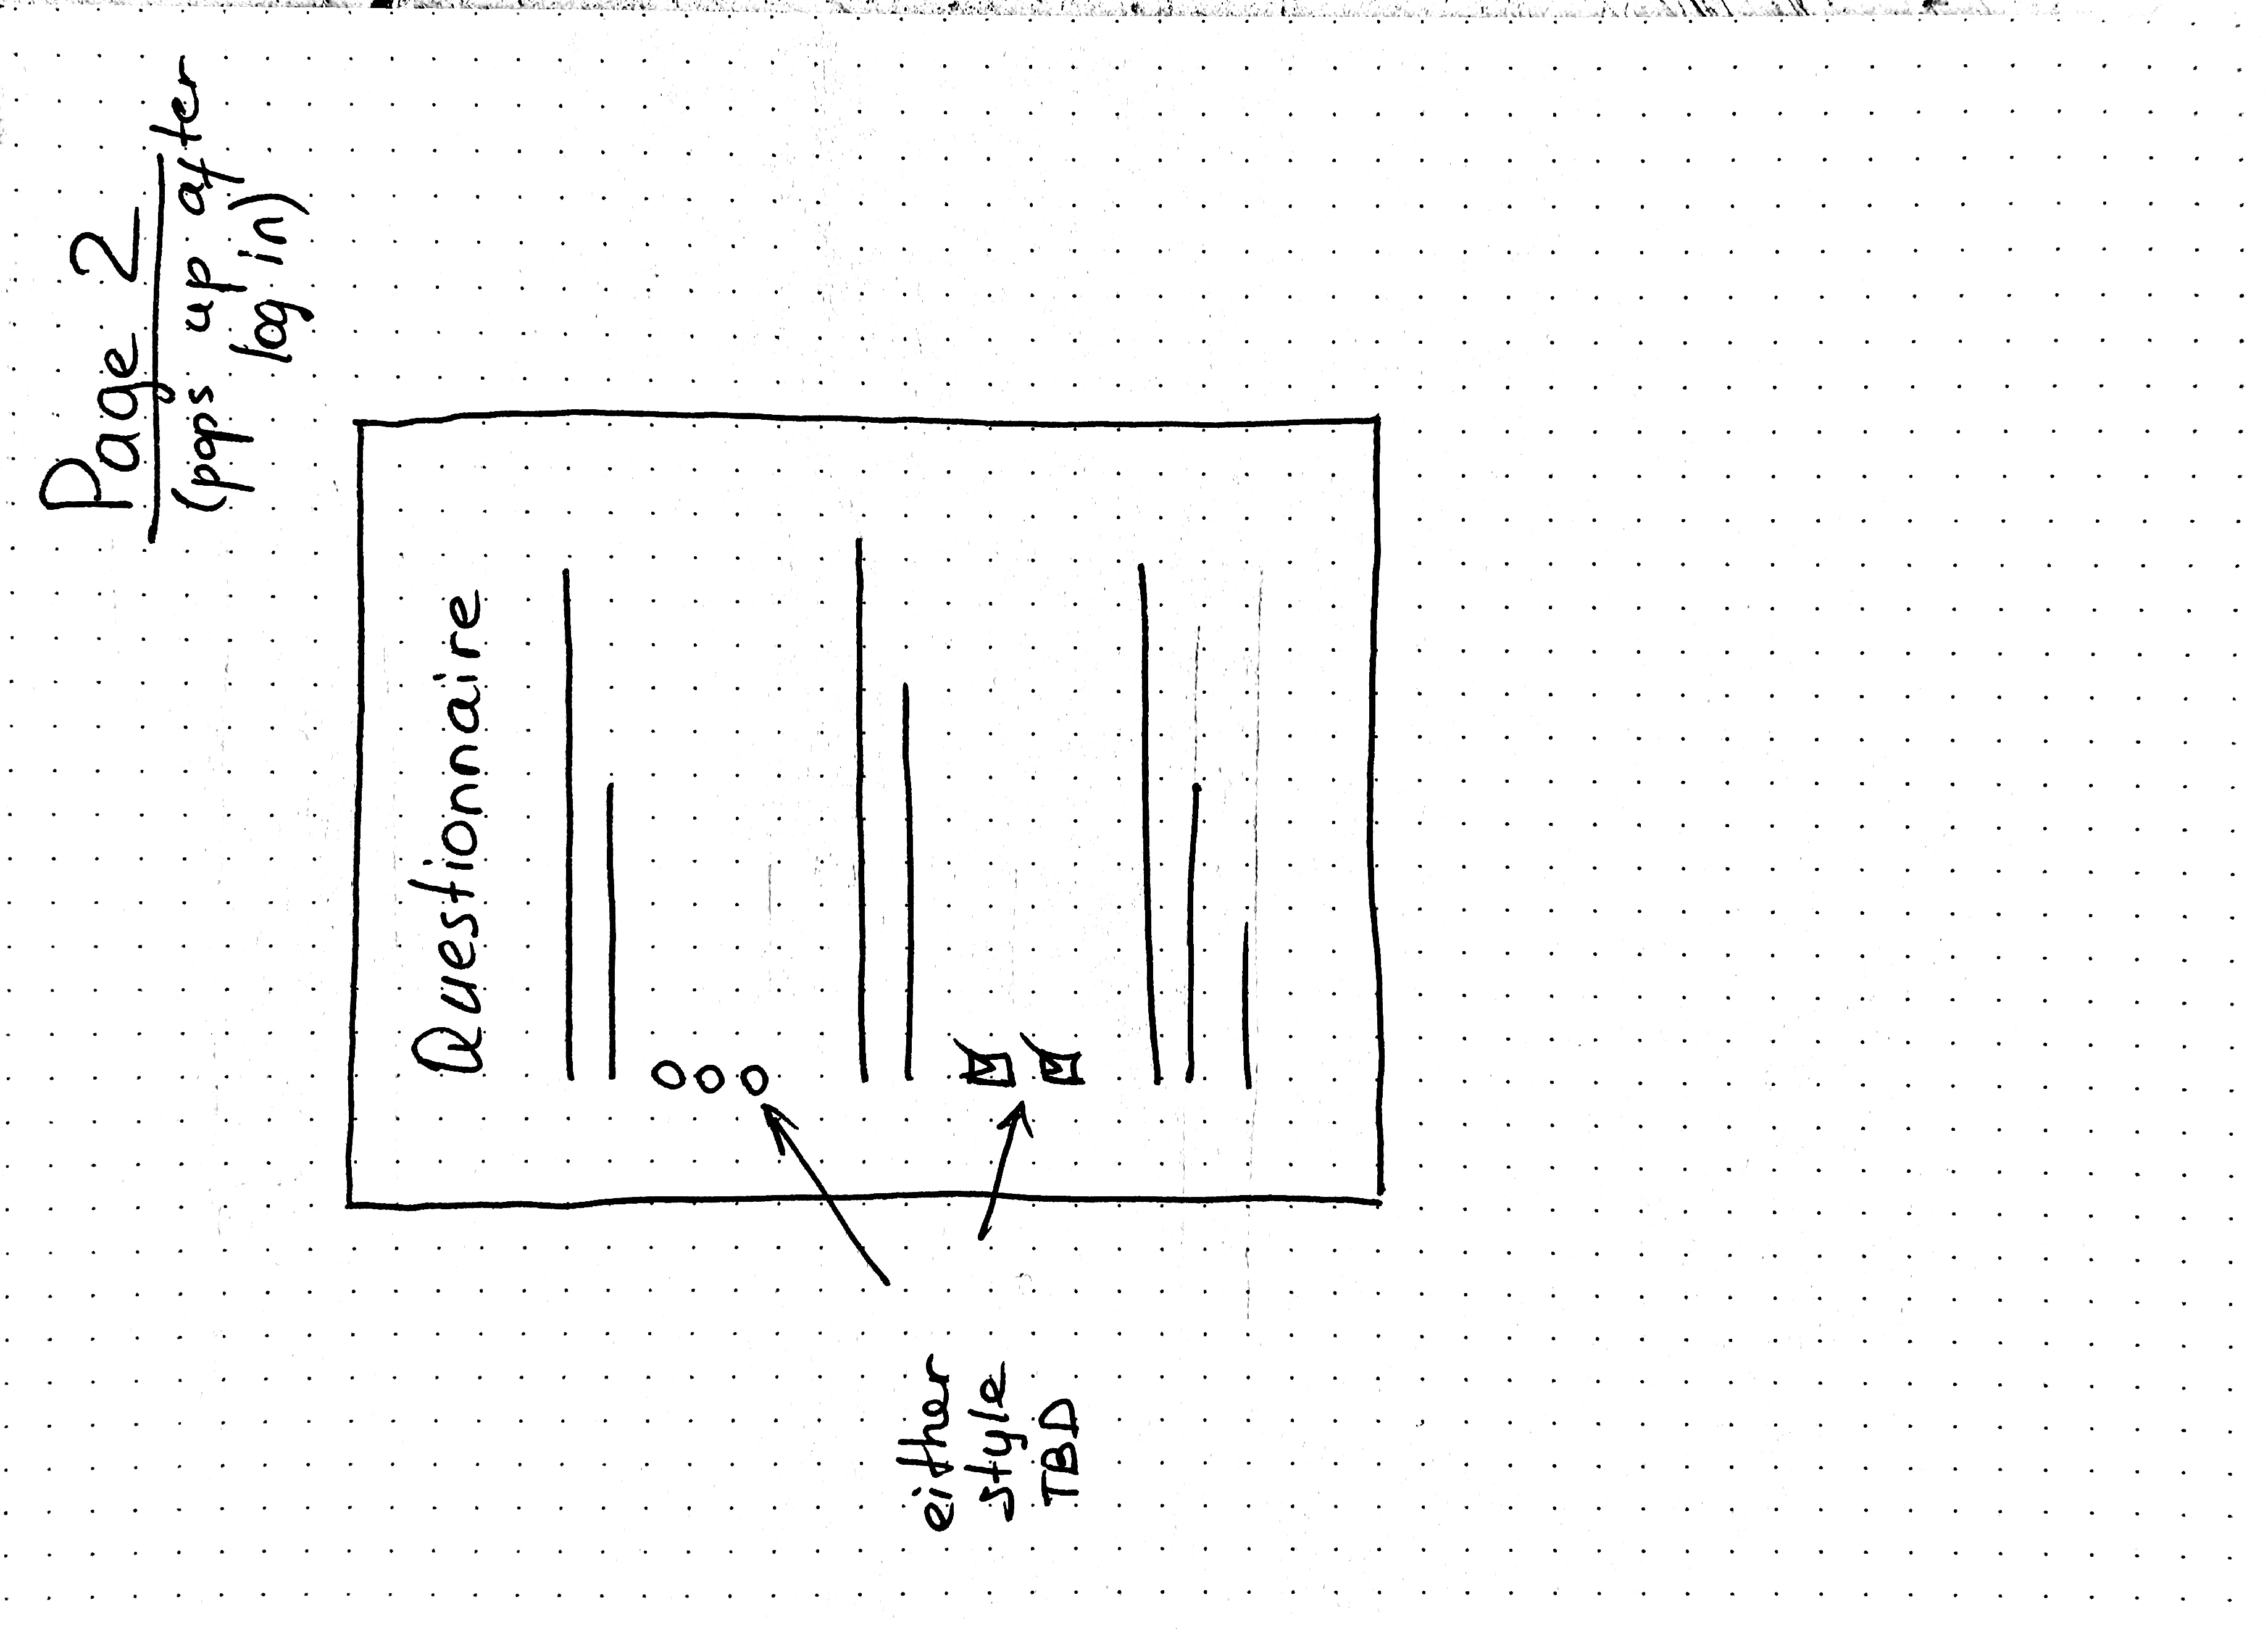 Page 2
(pops up after
log in)
Questionnaire
either
style
TBD